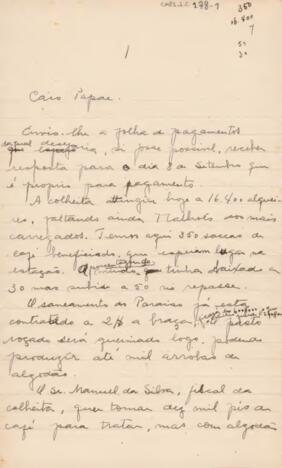 178-1
350
16.400
7
50
30
1
Caro Papae.
Envio-lhe a folha de pagamentos
qual desejaria, si fosse possivel, receber
resposta para o dia 8 de Setembro que
é proprio para pagamento.
A colheita attingiu hoje a 16.400 alquei-
res, faltando ainda 7 talhões dos mais
carregados. Temos aqui 350 saccas de
café beneficiado que esperam logar na
estação. tinha baixado a
30 mas subiu a 50 no repasse.
O saneamento do Paraizo já está
contractado a 2\$ a braça, o pasto
roçado será queimado logo, podemos
produzir até mil arrobas de
algodão.
O Sr. Manuel da Silva, fiscal da
colheita, quer tomar dez mil pés de
café para tratar, mas com algodão